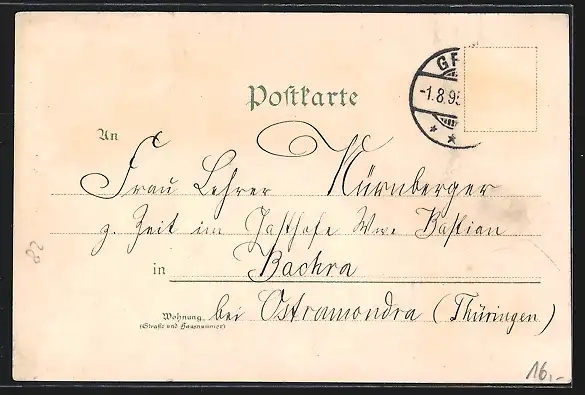 Postkarte
-1.8.9
An
Frau Lehrer Nürnberger
z. Zeit im Gasthofe Wwe Bastian
in Bachra
Wohnung bei Ostramondra (Thüringen)
(Straße und Hausnummer)
28
16,-